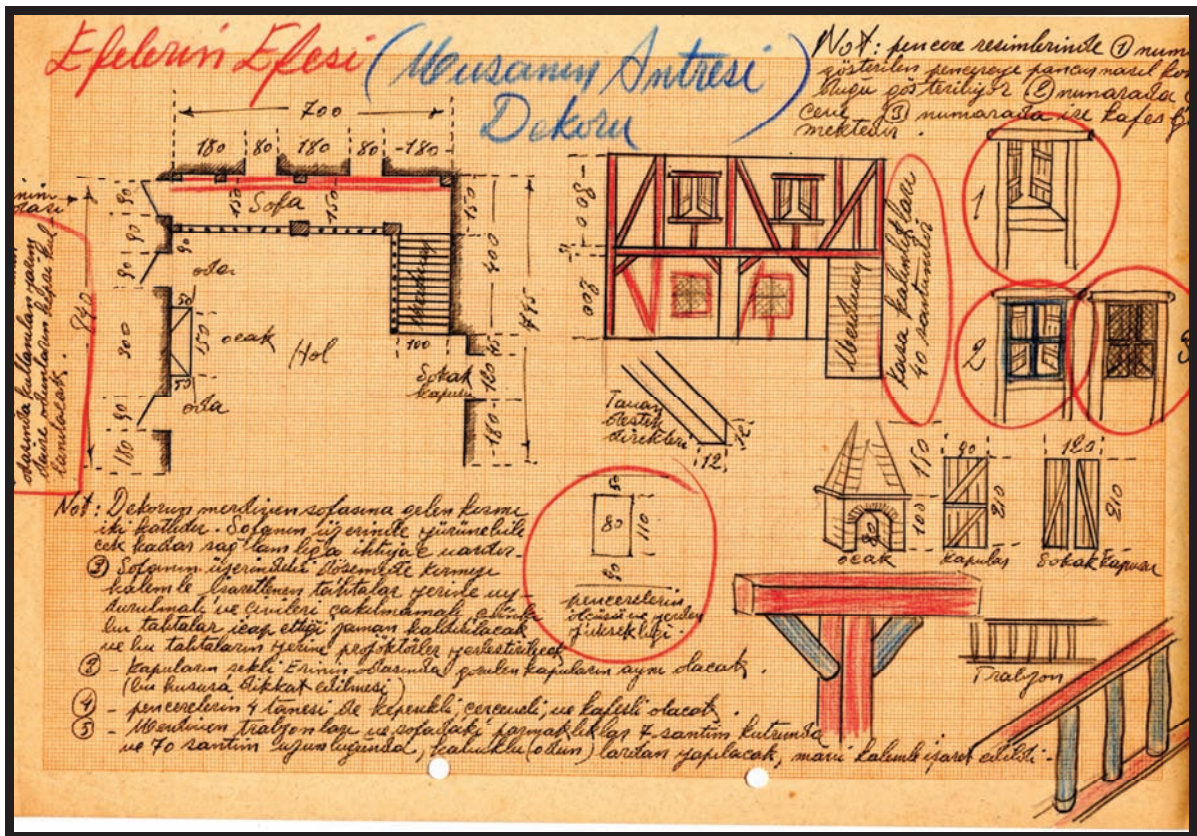 Efelerin Efesi (Musanın Antresi)
Dekoru
Not: pencere resimlerinde ① num
gösterilen pencereye pancur nasıl
gösteriliyor ② numarada
③ numarada ise kafes
mektedir.
700
180 80 180 80 -180-
150 Sofa 150
150
90
90
90
90
oda
50
150
50
ocak
Hol
oda
300
90
180
840
Merdiven
100
400
745
45
120
180
Sokak
kapusu
odasında kullanılan yarım
daire odunların hepsi kul
lanılacak.
200
200
Merdiven
Kasa kalınlıkları
40 santimdir
1
2
3
Tavan
destek
direkleri
12
12
50
80
110
90
pencerelerin
ölçüsü ve yerden
yüksekliği
150
100
80
ocak
90
210
kapular
120
210
Sokak kapusu
Trabzon
Not: Dekorun merdiven sofasına gelen kısmı
iki katlıdır. Sofanın üzerinde yürünebile
cek kadar sağlamlığa ihtiyaç vardır-
Sofanın üzerindeki döşemede kırmızı
kalemle işaretlenen tahtalar yerine uy
durulmalı ve çivileri çakılmamalı çünkü
bu tahtalar icap ettiği zaman kaldırılacak
ve bu tahtaların yerine projöktörler yerleştirilecek
③ - kapuların şekli Erinin odasında görülen kapuların aynı olacak.
(bu hususa dikkat edilmesi)
④ - pencerelerin 4 tanesi de kepenkli çerçeveli, ve kafesli olacak.
⑤ - Merdiven trabzonları ve sofadaki parmaklıklar 7 santim kutrunda
ve 70 santim uzunluğunda, kabuklu (odun)lardan yapılacak, mavi kalemle işaret edildi-